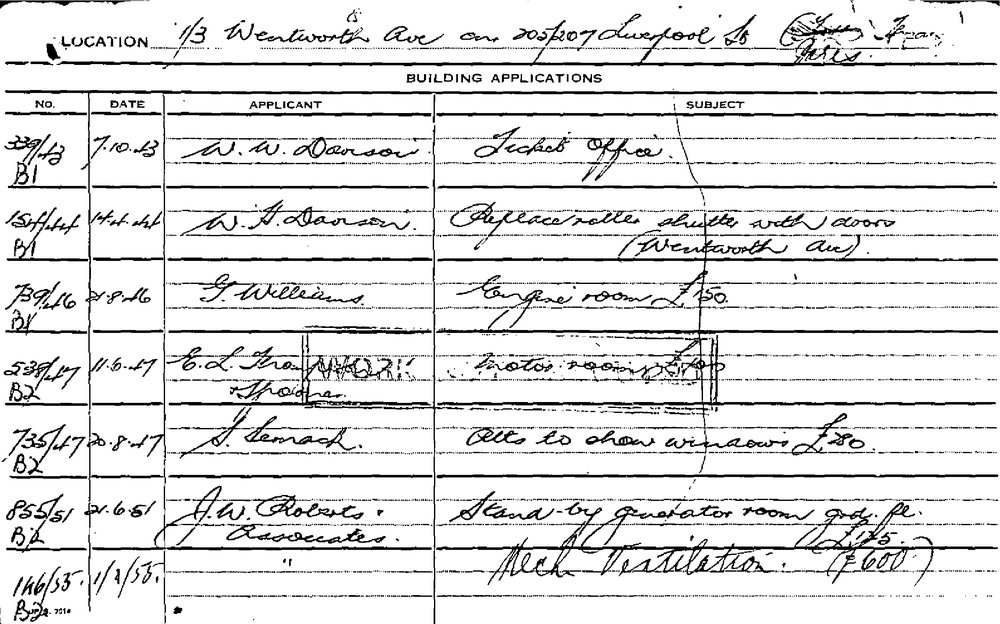 LOCATION 1/3 Wentworth Ave cnr 205/207 Liverpool St
BUILDING APPLICATIONS
NO. DATE APPLICANT SUBJECT
339/43 7.10.43 W. W. Davison. Ticket Office.
B1
154/44 14.4.44 W. H. Davison. Replace roller shutter with doors
B1 (Wentworth Ave)
739/46 21.8.46 G. Williams. Engine room £150.
B1
538/47 11.6.47 E. L. motor room
B2 & Spooner
735/47 20.8.47 S. Semack. Alts to show windows £280.
B2
855/51 21.6.51 J. W. Roberts & Stand-by generator room grd. fl.
B2 Associates. £175.
146/55. 1/2/55. " Mech Ventilation. (£600)
B2